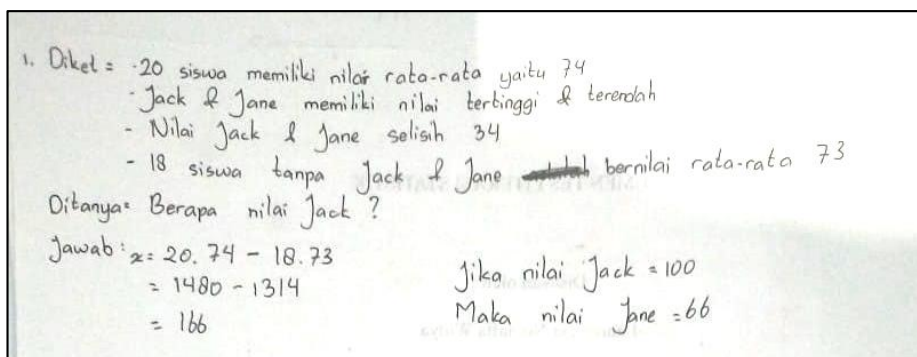 1. Diket = - 20 siswa memiliki nilai rata-rata yaitu 74
- Jack & Jane memiliki nilai tertinggi & terendah
- Nilai Jack & Jane selisih 34
- 18 siswa tanpa Jack & Jane bernilai rata-rata 73
Ditanya = Berapa nilai Jack ?
Jawab : x = 20 . 74 - 18 . 73
= 1480 - 1314
= 166
Jika nilai Jack = 100
Maka nilai Jane = 66